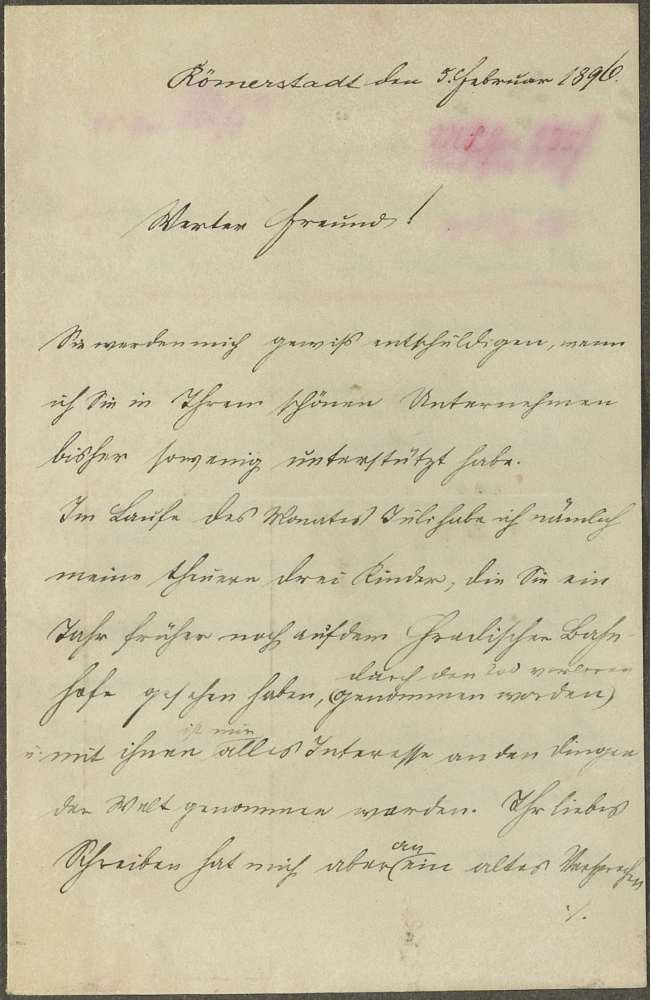 Römerstadt den 5. Februar 1896.
Werter Freund!
Sie werden mich gewiß entschuldigen, wenn
ich Sie in Ihrem schönen Unternehmen
bisher so wenig unterstützt habe.
Im Laufe des Monates Juli habe ich nämlich
meine theuern drei Kinder, die Sie ein
Jahr früher noch auf dem Hradischer Bahn-
durch den Tod verloren
hofe gesehen haben, (genommen worden)
ist mir
u. mit ihnen alles Interesse an den Dingen
der Welt genommen worden. Ihr liebes
an
Schreiben hat mich aber (ein altes Versprechen
./.